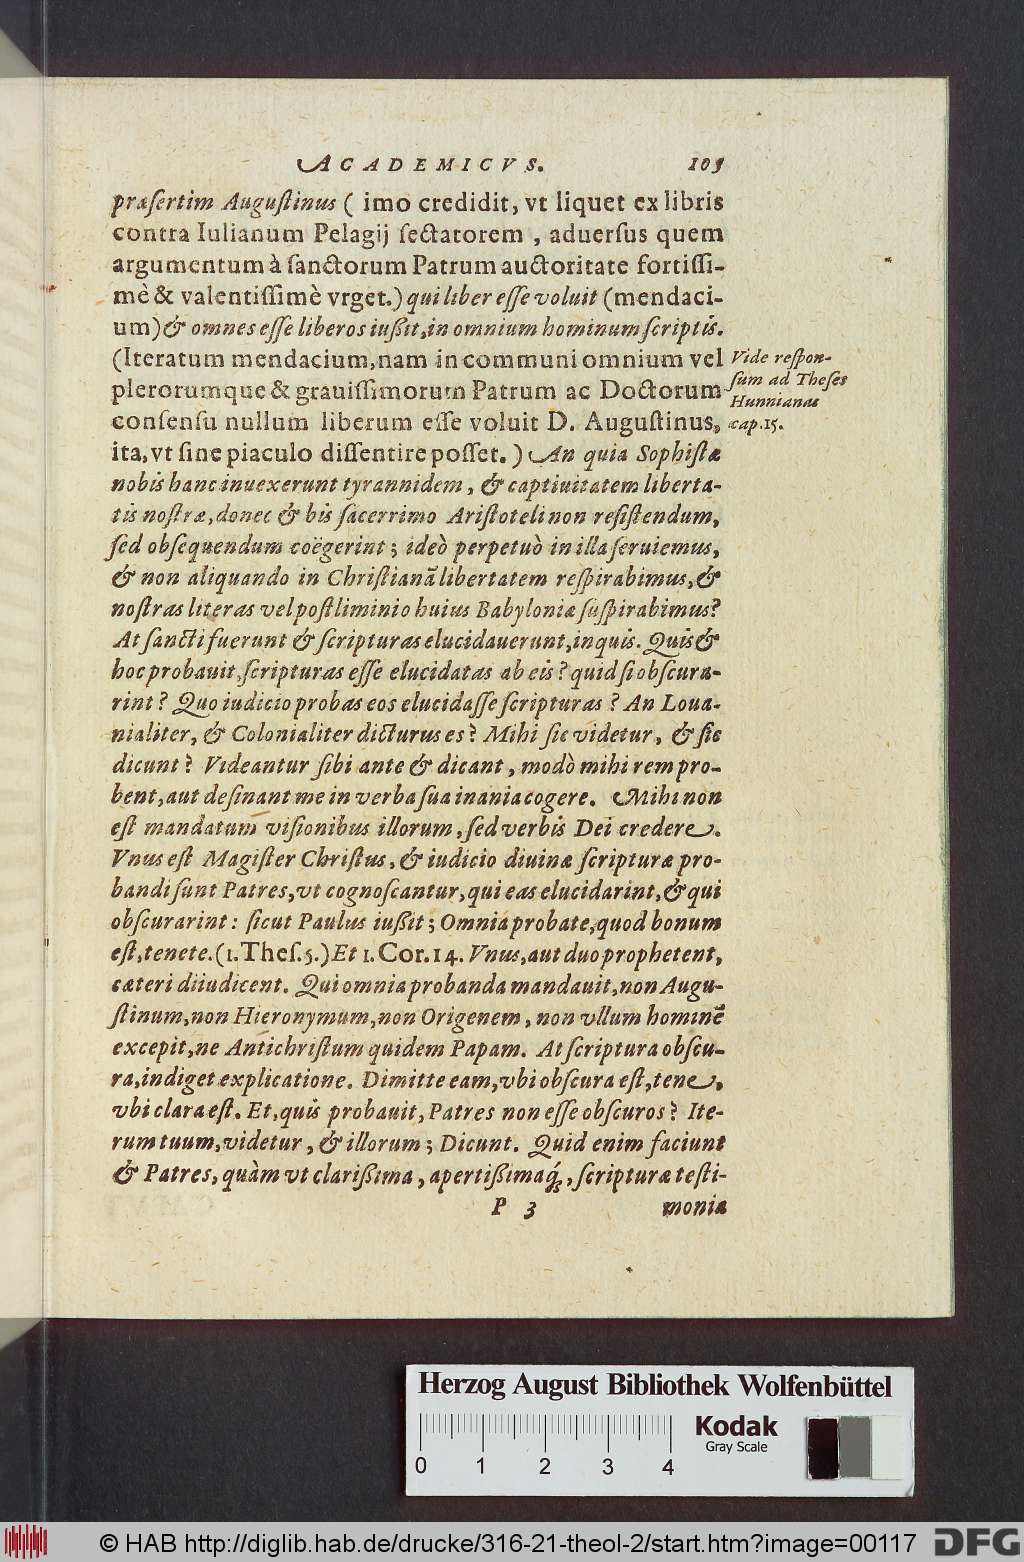 ACADEMICVS. 105
præſertim Auguſtinus ( imo credidit, vt liquet ex libris
contra Iulianum Pelagij ſectatorem , aduerſus quem
argumentum à ſanctorum Patrum auctoritate fortiſſi-
mè & valentiſſimè vrget.) qui liber eſſe voluit (mendaci-
um) & omnes eſſe liberos iußit, in omnium hominum ſcriptis.
(Iteratum mendacium, nam in communi omnium vel
plerorumque & grauiſſimorum Patrum ac Doctorum
conſenſu nullum liberum eſſe voluit D. Auguſtinus,
ita, vt ſine piaculo diſſentire poſſet. ) An quia Sophiſtæ
Vide reſpon-
ſum ad Theſes
Hunnianas
cap. 15.
nobis hanc inuexerunt tyrannidem, & captiuitatem liberta-
tis noſtræ, donec & bis ſacerrimo Ariſtoteli non reſiſtendum,
ſed obſequendum coëgerint; ideò perpetuò in illa ſeruiemus,
& non aliquando in Chriſtianã libertatem reſpirabimus, &
noſtras literas vel poſtliminio huius Babyloniæ ſuſpirabimus?
At ſancti fuerunt & ſcripturas elucidauerunt, inquis. Quis &
hoc probauit, ſcripturas eſſe elucidatas ab eis? quid ſi obſcura-
rint? Quo iudicio probas eos elucidaſſe ſcripturas? An Loua-
nialiter, & Colonialiter dicturus es? Mihi ſic videtur, & ſic
dicunt? Videantur ſibi ante & dicant, modò mihi rem pro-
bent, aut deſinant me in verba ſua inania cogere. Mihi non
eſt mandatum viſionibus illorum, ſed verbis Dei credere.
Vnus eſt Magiſter Chriſtus, & iudicio diuinæ ſcripturæ pro-
bandi ſunt Patres, vt cognoſcantur, qui eas elucidarint, & qui
obſcurarint: ſicut Paulus iußit; Omnia probate, quod bonum
eſt, tenete. (1. Theſ. 5.) Et 1. Cor. 14. Vnus, aut duo prophetent,
cæteri diiudicent. Qui omnia probanda mandauit, non Augu-
ſtinum, non Hieronymum, non Origenem, non vllum hominẽ
excepit, ne Antichriſtum quidem Papam. At ſcriptura obſcu-
ra, indiget explicatione. Dimitte eam, vbi obſcura eſt, tene,
vbi clara eſt. Et, quis probauit, Patres non eſſe obſcuros? Ite-
rum tuum, videtur, & illorum; Dicunt. Quid enim faciunt
& Patres, quàm vt clarißima, apertißimaq́;, ſcripturæ teſti-
P 3 monia
Herzog August Bibliothek Wolfenbüttel
0 1 2 3 4
Kodak
Gray Scale
© HAB http://diglib.hab.de/drucke/316-21-theol-2/start.htm?image=00117
DFG